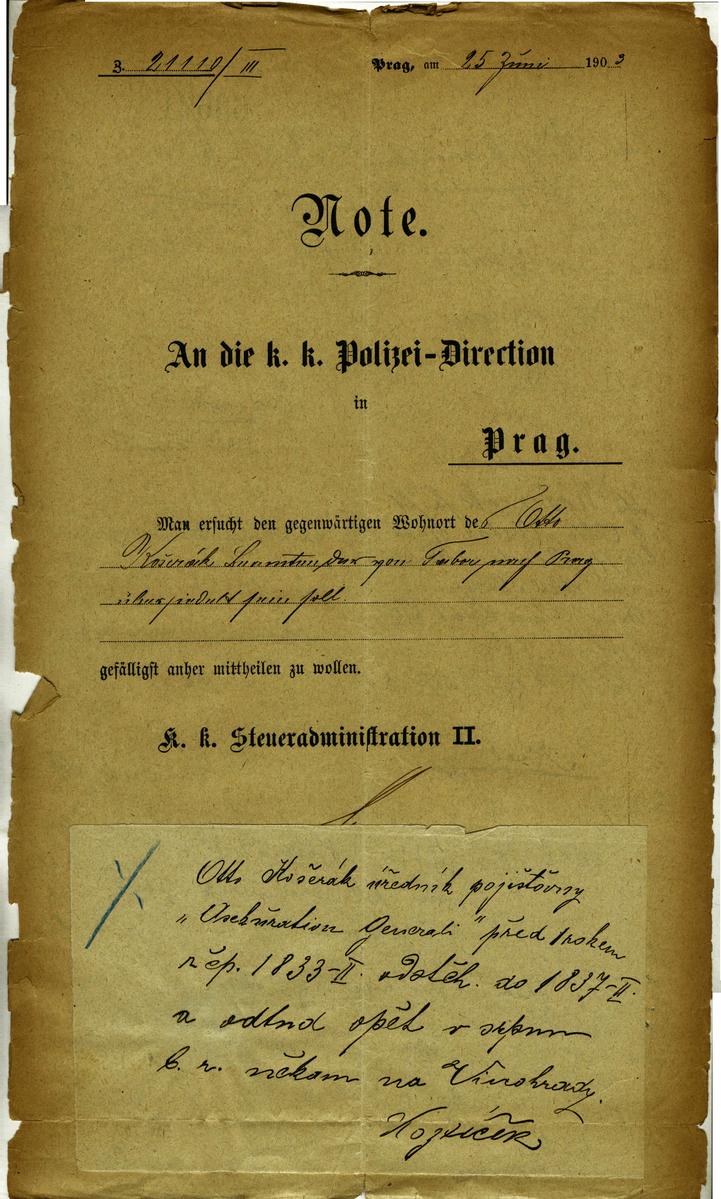 Z. 21110/III Prag, am 25 Juni 1903
Note.
An die k. k. Polizei-Direction
in
Prag.
Man ersucht den gegenwärtigen Wohnort des Otto
Košerák Beamten, der von Tabor nach Prag
übersiedelt sein soll.
gefälligst anher mittheilen zu wollen.
K. k. Steueradministration II.
Otto Košerák úředník pojišťovny
"Asekuration Generali" před 1 rokem
z čp. 1833-II. odstěh. do 1837-II.
a odtud opět v srpnu
t. r. někam na Vinohrady.